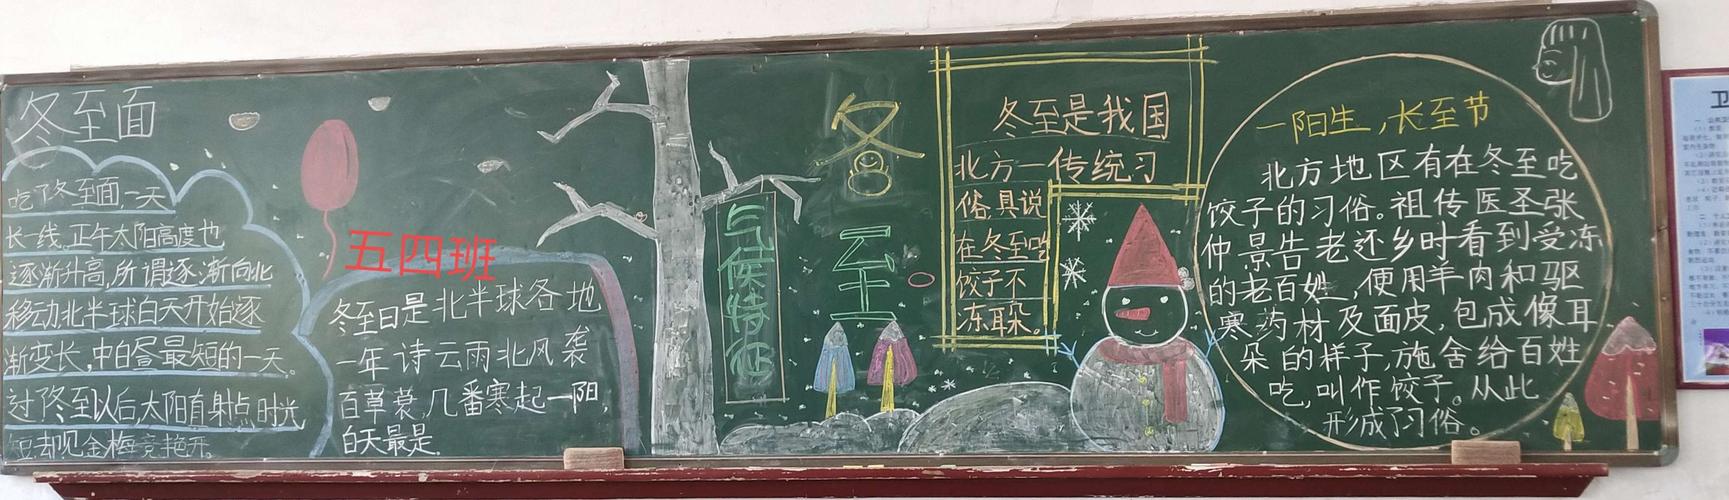 冬至面
吃了冬至面,一天
长一线。正午太阳高度也
逐渐升高,所谓逐渐向北
移动北半球白天开始逐
渐变长,中白昼最短的一天。
过了冬至以后,太阳直射点时光
短却见金梅竞艳开。
五四班
冬至日是北半球各地
一年诗云雨北风袭
百草衰,几番寒起一阳,
白天最是.
气候特征
冬
至
冬至是我国
北方一传统习
俗,具说
在冬至吃
饺子不
冻耳朵。
一阳生,长至节
北方地区有在冬至吃
饺子的习俗。祖传医圣张
仲景告老还乡时看到受冻
的老百姓,使用羊肉和驱
寒药材及面皮,包成像耳
朵的样子,施舍给百姓
吃,叫作饺子。从此
形成了习俗。
卫